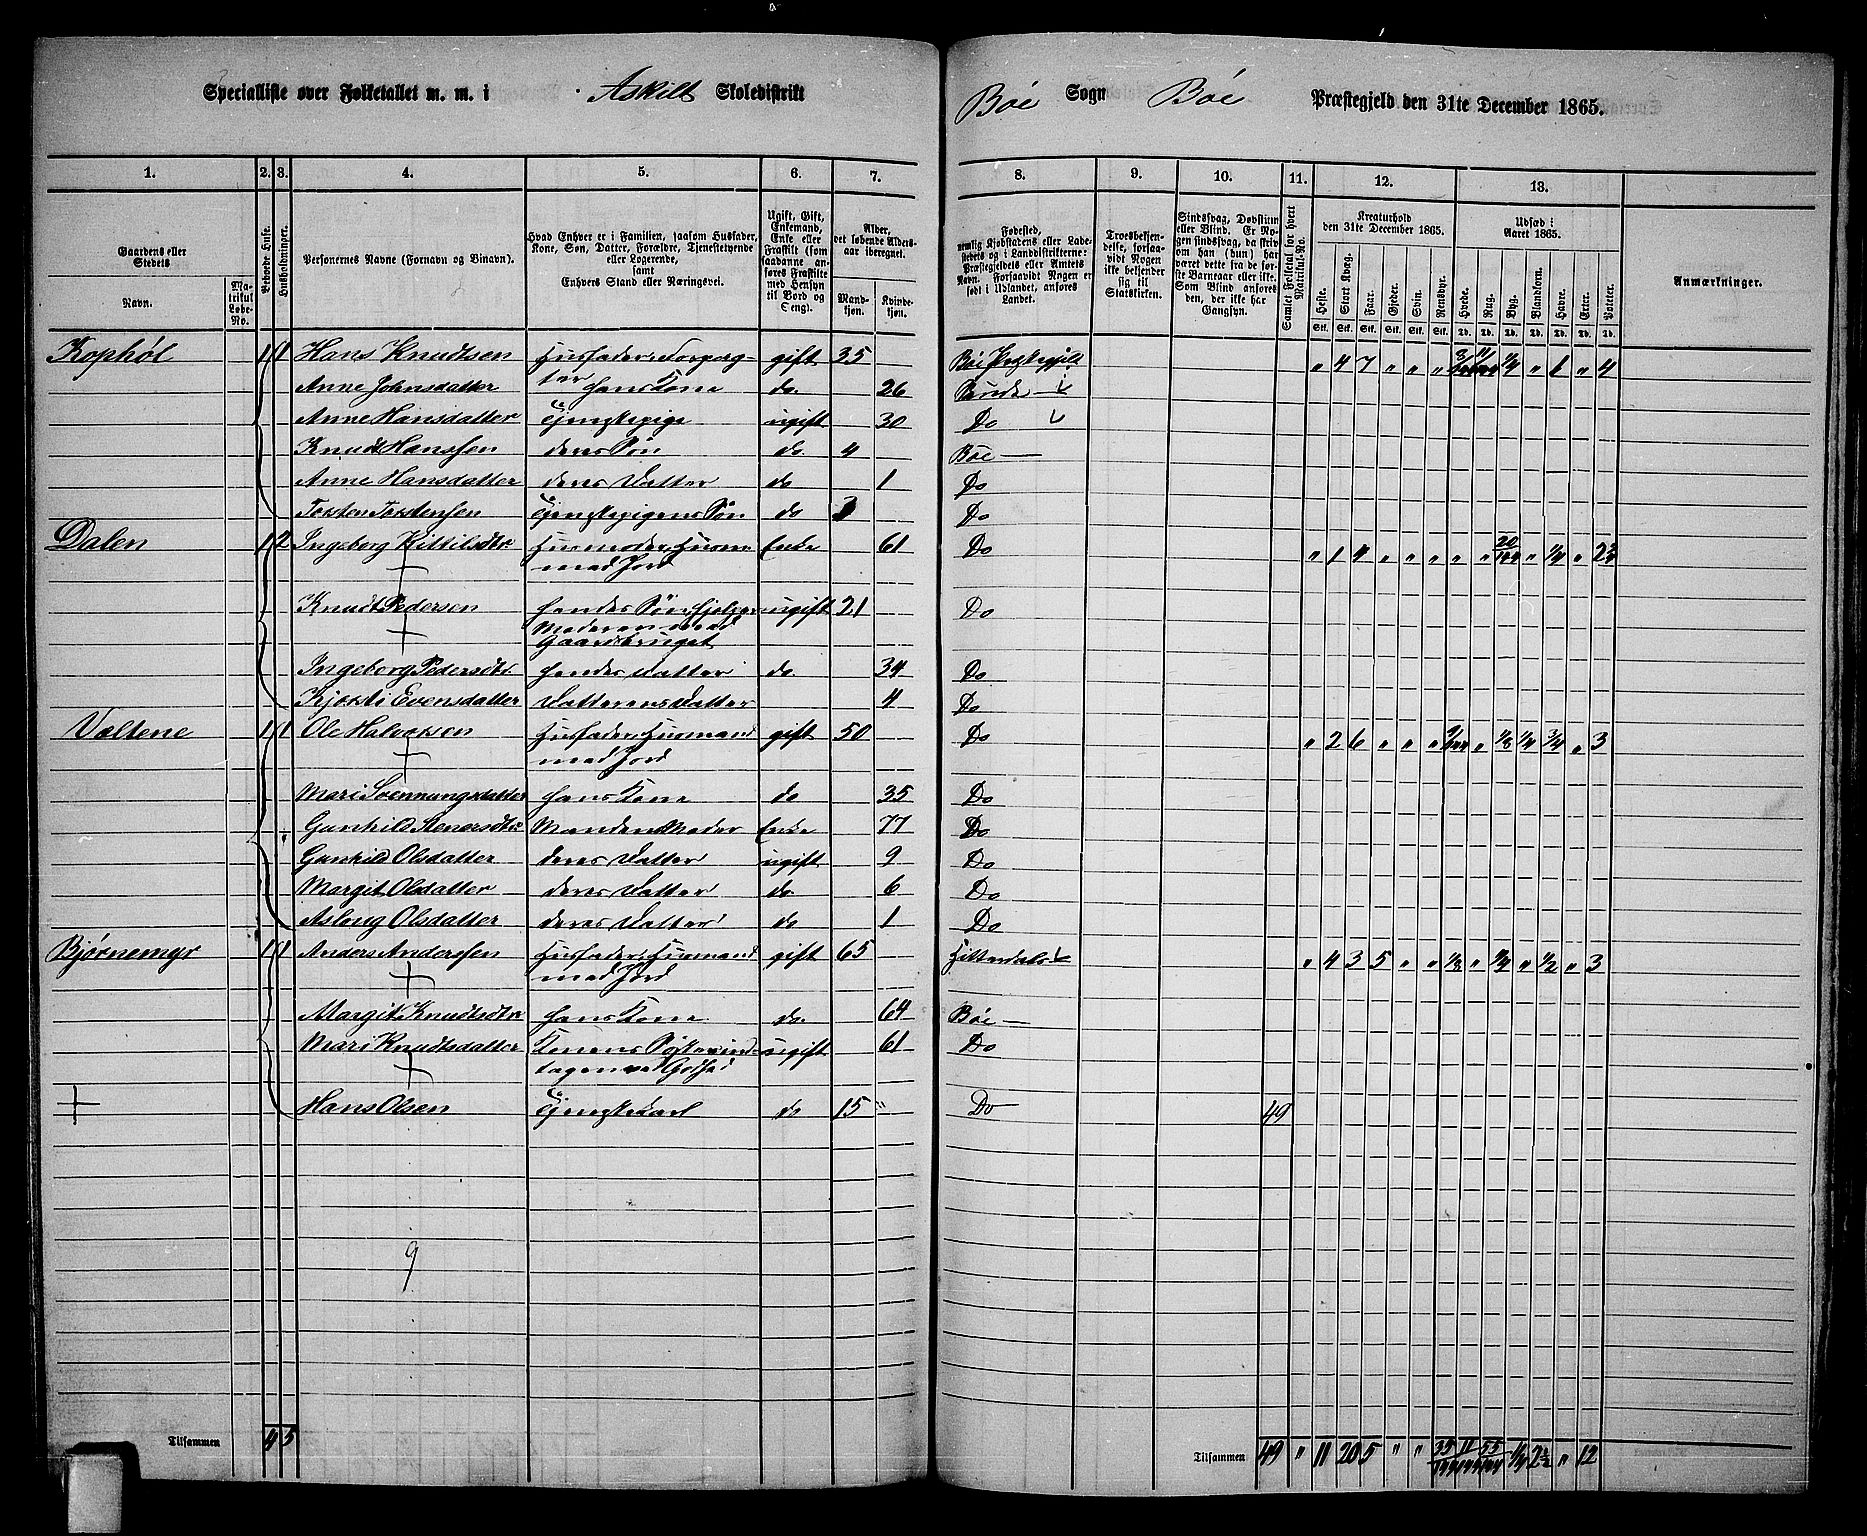 Specialliste over Folketallet m. m. i Askilt Skoledistrikt
Bøe Sogn Bøe Præstegjeld den 31te December 1865.
1. 2. 3. 4. 5. 6. 7. 8. 9. 10. 11. 12. 13.
Gaardens eller Stedets
Navn.
Matrikul Løbe-No.
Beboede Huse.
Husholdninger.
Personernes Navne (Fornavn og Binavn).
Hvad Enhver er i Familien, saasom Husfader, Kone, Søn, Datter, Forældre, Tjenestetyende eller Logerende, samt Enhvers Stand eller Næringsvei.
Ugift, Gift, Enkemand, Enke eller Fraskilt (som saadanne anføres Fraskilte med Hensyn til Bord og Seng).
Alder, det løbende Alders-aar iberegnet.
Mandkjøn.
Kvindekjøn.
Fødested, nemlig Kjøbstadens eller Ladestedets og i Landdistrikterne: Præstegjeldets eller Amtets Navn. Forsaavidt Nogen er født i Udlandet, anføres Landet.
Troesbekjendelse, forsaavidt Nogen ikke bekjender sig til Statskirken.
Sindssvag, Døvstum eller Blind. Er Nogen sindssvag, da skrives om han (hun) har været dette fra de første Barneaar eller ikke. Som Blind anføres den, der ikke har Gangsyn.
Samlet Folketal for hvert Matrikul-No.
Kreaturhold den 31te December 1865.
Heste. Stort Kvæg. Faar. Gjeder. Svin. Rensdyr.
Udsæd i Aaret 1865.
Hvede. Rug. Byg. Blandkorn. Havre. Erter. Poteter.
Anmærkninger.
Stk. Stk. Stk. Stk. Stk. Stk. Td. Td. Td. Td. Td. Td. Td.
Kophøl 1 1 Hans Knudtsen Husfader, Forpag- gift 35 Bøe Præstegjeld " 4 7 " " " 1/4 " 1 " 4
Anne Johnsdatter ter hans Kone do. 26
Anne Hansdatter Tjenstepige ugift 30 Do
Knud Hanssen deres Søn do. 4 Bøe
Anne Hansdatter deres Datter do 1 Do
Torsten Torstensen Tjenstepigens Søn do Do
Dalen 1 2 Ingeborg Kittilsdtr. Husmoder, Husm: Enke 61 Do " 1 4 " " " " " 20/144 " 1/4 " 2 3/4
med Jord
Knudt Pedersen hendes Søn, hjelper ugift 21 Do
Moderen med
Gaardsbruget
Ingeborg Pedersdtr. hendes Datter do. 34 Do
Kjersti Evensdatter Datterens Datter 4 Do
Valtene 1 1 Ole Halvorsen Husfader, Husmand gift 50 Do " 2 6 " " " 9/144 " 1/8 1/4 3/4 " 3
med Jord
Mari Svennungsdatter hans Kone do 35 Do
Gunhild Stenersdtr Mandens Moder Enke 77 Do
Gunhild Olsdatter deres Datter ugift 9 Do
Margit Olsdatter deres Datter do 6 Do
Aslong Olsdatter deres Datter do 1 Do
Bjørnemyr 1 1 Anders Andersen Husfader, Husmand gift 65 Hitterdals " 4 3 5 " " 1/8 " 1/4 " 1/2 " 3
med Jord
Margit Knudtsdtr hans Kone do. 64 Bøe
Mari Knudtsdatter Konens Søster, ind- ugift 61 Do
tagen ved Godhed
Hans Olsen Tjenstekarl do 15 " Do 49
9
Tilsammen 4 5
Tilsammen 49 " 11 20 5 " " 35/144 11/144 55/144 1/4 2 1/2 " 12